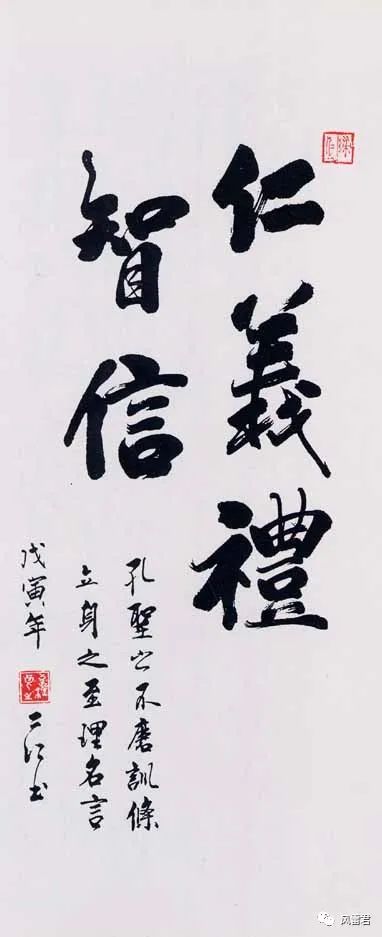 仁義禮
智信
孔聖之不磨訓條
立身之至理名言
戊寅年
二江书
风雷君